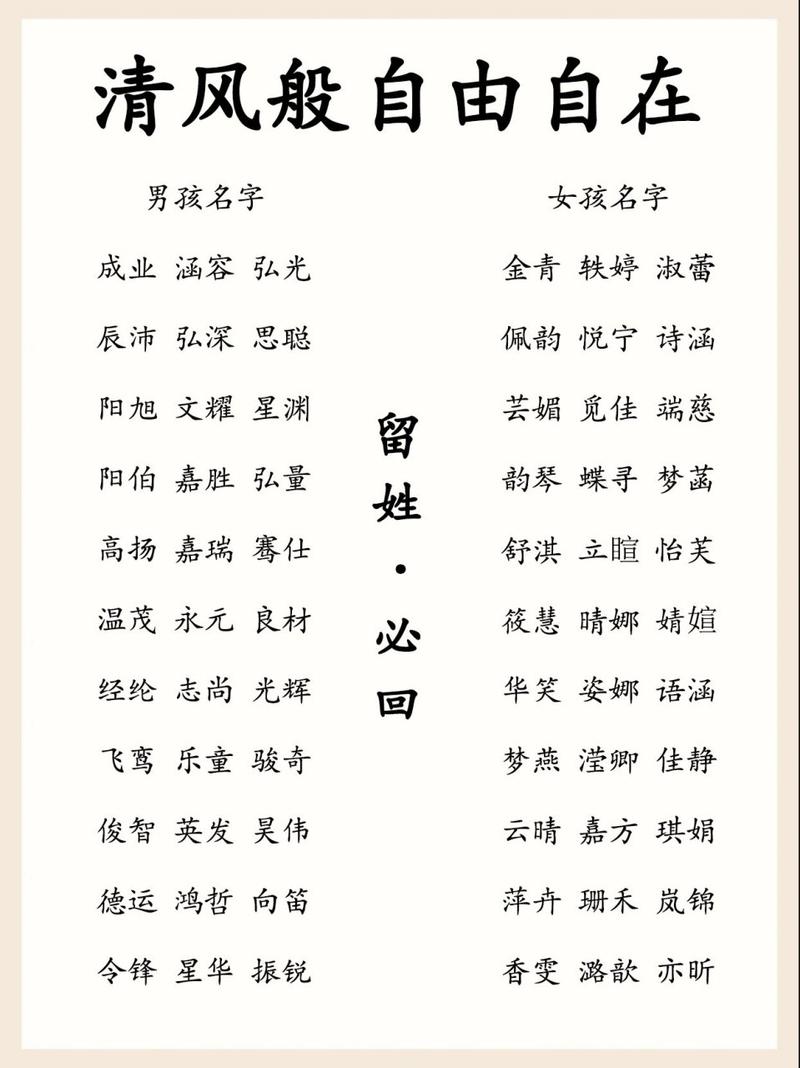 清风般自由自在
男孩名字
成业 涵容 弘光
辰沛 弘深 思聪
阳旭 文耀 星渊
阳伯 嘉胜 弘量
高扬 嘉瑞 骞仕
温茂 永元 良材
经纶 志尚 光辉
飞鸾 乐童 骏奇
俊智 英发 昊伟
德运 鸿哲 向笛
令锋 星华 振锐
留姓·必回
女孩名字
金青 轶婷 淑蕾
佩韵 悦宁 诗涵
芸媚 觅佳 端慈
韵琴 蝶寻 梦菡
舒淇 立暄 怡芙
筱慧 晴娜 婧媗
华笑 姿娜 语涵
梦燕 滢卿 佳静
云晴 嘉方 琪娟
萍卉 珊禾 岚锦
香雯 潞歆 亦昕